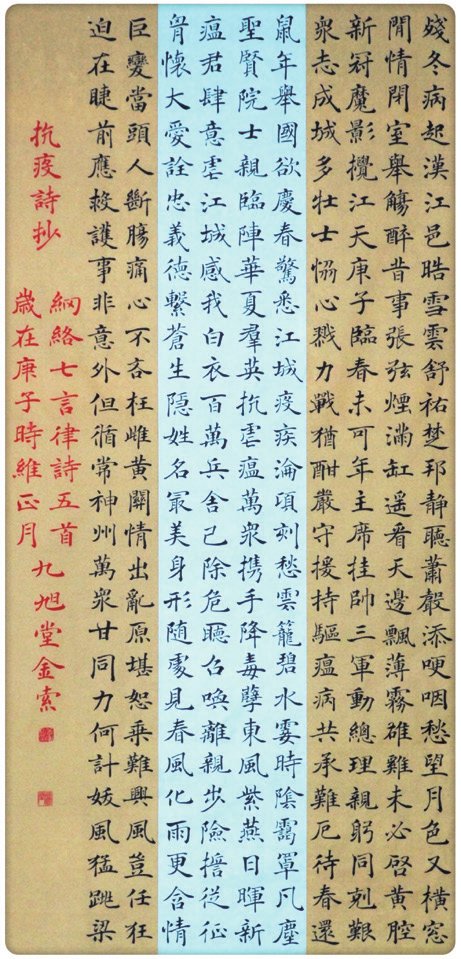 殘冬病起漢江邑皓雪雲舒祐楚邦靜聽蕭聲添哽咽愁望月色又橫窓
閒情閉室舉觴醉昔事張弦煙滿缸遙看天邊飄薄霧碓雞未必啓黃腔
新冠魔影攪江天庚子臨春未可年主席挂帥三軍動總理親躬同剋艱
衆志成城多壯士恊心戮力戰猶酣嚴守援持驅瘟病共承難厄待春還
鼠年舉國欲慶春驚悉江城疫疾淪項刻愁雲籠碧水霎時陰靄罩凡塵
聖賢院士親臨陣華夏羣英抗虐瘟萬衆携手降毒孽東風紫燕日暉新
瘟君肆意虐江城感我白衣百萬兵舍己除危聽召喚離親步險捨從征
骨懷大愛詮忠義德繫蒼生隱姓名冣美身形随處見春風化雨更含情
巨變當頭人斷腸痛心不吝枉雌黃關情出亂原堪恕乘難興風豈任狂
迫在睫前應救護事非意外但循常神州萬衆甘同力何計妖風猛跳梁
抗疫詩抄
網絡七言律詩五首
歲在庚子時維正月
九旭堂金索